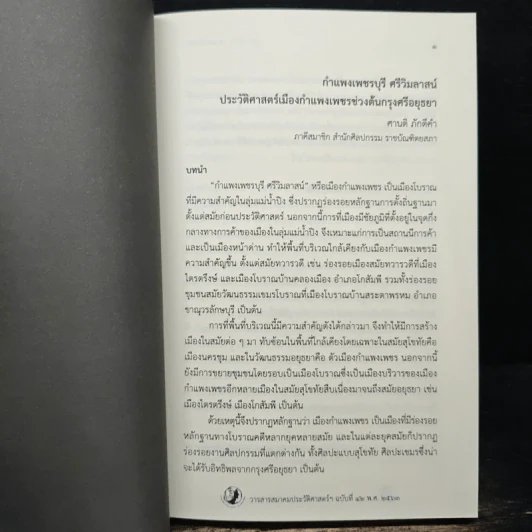 ๑
กำแพงเพชรบุรี ศรีวิมลาสน์
ประวัติศาสตร์เมืองกำแพงเพชรช่วงต้นกรุงศรีอยุธยา
ศานติ ภักดีคำ
ภาคีสมาชิก สำนักศิลปกรรม ราชบัณฑิตยสภา
บทนำ
"กำแพงเพชรบุรี ศรีวิมลาสน์" หรือเมืองกำแพงเพชร เป็นเมืองโบราณ
ที่มีความสำคัญในลุ่มแม่น้ำปิง ซึ่งปรากฏร่องรอยหลักฐานการตั้งถิ่นฐานมา
ตั้งแต่สมัยก่อนประวัติศาสตร์ นอกจากนี้การที่เมืองมีชัยภูมิที่ตั้งอยู่ในจุดกึ่ง
กลางทางการค้าของเมืองในลุ่มแม่น้ำปิง จึงเหมาะแก่การเป็นสถานนีการค้า
และเป็นเมืองหน้าด่าน ทำให้พื้นที่บริเวณใกล้เคียงกับเมืองกำแพงเพชรมี
ความสำคัญขึ้น ตั้งแต่สมัยทวารวดี เช่น ร่องรอยเมืองสมัยทวารวดีที่เมือง
ไตรตรึงษ์ และเมืองโบราณบ้านคลองเมือง อำเภอโกสัมพี รวมทั้งร่องรอย
ชุมชนสมัยวัฒนธรรมเขมรโบราณที่เมืองโบราณบ้านสระตาพรหม อำเภอ
ขาณุวรลักษบุรี เป็นต้น
การที่พื้นที่บริเวณนี้มีความสำคัญดังได้กล่าวมา จึงทำให้มีการสร้าง
เมืองในสมัยต่อ ๆ มา ทับซ้อนในพื้นที่ใกล้เคียงโดยเฉพาะในสมัยสุโขทัยคือ
เมืองนครชุม และในวัฒนธรรมอยุธยาคือ ตัวเมืองกำแพงเพชร นอกจากนี้
ยังมีการขยายชุมชนโดยรอบเป็นเมืองโบราณซึ่งเป็นเมืองบริวารของเมือง
กำแพงเพชรอีกหลายเมืองในสมัยสุโขทัยสืบเนื่องมาจนถึงสมัยอยุธยา เช่น
เมืองไตรตรึงษ์ เมืองโกสัมพี เป็นต้น
ด้วยเหตุนี้จึงปรากฏหลักฐานว่า เมืองกำแพงเพชร เป็นเมืองที่มีร่องรอย
หลักฐานทางโบราณคดีหลากยุคหลายสมัย และในแต่ละยุคสมัยก็ปรากฏ
ร่องรอยงานศิลปกรรมที่แตกต่างกัน ทั้งศิลปะแบบสุโขทัย ศิลปะเขมรซึ่งน่า
จะได้รับอิทธิพลจากกรุงศรีอยุธยา เป็นต้น
วารสารสมาคมประวัติศาสตร์ฯ ฉบับที่ ๔๒ พ.ศ. ๒๕๖๓